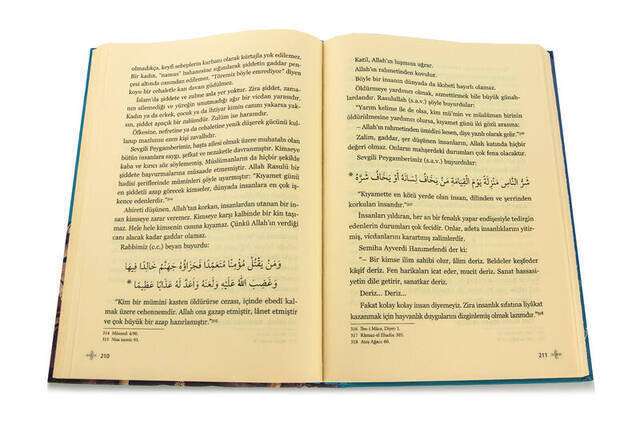 olmadıkça, keyfi sebeplerin kurbanı olarak kürtajla yok edilemez.
Bir kadın, "namus" bahanesine sığınılarak şiddetin gaddar pen-
çesi altında canından edilemez. "Töremiz böyle emrediyor" diyen
koyu bir cehaletle kan davası güdülmez.
İslam'da şiddete ve zulme asla yer yoktur. Zira şiddet, zama-
nın silemediği ve yüreğin unutmadığı ağır bir vicdan yarasıdır.
Kadın ya da erkek, çocuk ya da ihtiyar kimin canını yakarsa yak-
sın, şiddet apaçık bir zulümdür. Zulüm ise haramdır.
Öfkesine, nefretine ya da cehaletine yenik düşerek gücünü kul-
lanıp
Sevgili Peygamberimiz, başta ailesi olmak üzere muhatabı olan
bütün insanlara saygı, şefkat ve nezaketle davranmıştır. Kimseye
kaba ve kırıcı söz söylememiş, Müslümanların da hiçbir şekilde
şiddete başvurmalarına müsaade etmemiştir. Allah Rasulü bir
hadisi şeriflerinde müminleri şöyle uyarmıştır: "Kıyamet günü
en şiddetli azap görecek kimseler, dünyada insanlara en çok iş-
kence edenlerdir."³¹⁴
Ahireti düşünen, Allah'tan korkan, insanlardan utanan bir in-
san kimseye zarar veremez. Kimseye karşı kalbinde bir kin taşı-
maz. Hele hele kimsenin canına kıyamaz. Çünkü Allah'ın verdiği
canı alacak kadar gaddar olamaz.
Rabbimiz (c.c.) beyan buyurdu:
وَمَنْ يَقْتُلْ مُؤْمِنًا مُتَعَمِّدًا فَجَزَاؤُهُ جَهَنَّمُ خَالِدًا فِيهَا
وَغَضِبَ اللّٰهُ عَلَيْهِ وَلَعَنَهُ وَاَعَدَّ لَهُ عَذَابًا عَظِيمًا *
"Kim bir mümini kasten öldürürse cezası, içinde ebedi kal-
mak üzere cehennemdir. Allah ona gazap etmiştir, lânet etmiştir
ve çok büyük bir azap hazırlamıştır."³¹⁵
314 Müsned: 4/90.
315 Nisa suresi: 93.
210
Katil, Allah'ın lanetine uğrar.
Allah'ın rahmetinden kovulur.
Böyle bir insanın dünyada da âkıbeti hayırlı olamaz.
Öldürmeye yardımcı olmak, azmettirmek bile büyük günah-
lardandır. Rasulullah (s.a.v.) şöyle buyurdular:
"Yarım kelime ile de olsa, kim mü'min ve müslüman birinin
öldürülmesine yardımcı olursa, kıyamet günü iki gözü arasına;
– Allah'ın rahmetinden ümidini kesen, diye yazılı olarak gelir."³¹⁶
Zalim, gaddar, şer düşünen insanların, Allah katında hiçbir
değeri olmaz. Onların mahşerdeki durumları çok fena olacaktır.
Sevgili Peygamberimiz (s.a.v.) buyurdular:
شَرُّ النَّاسِ مَنْزِلَةً يَوْمَ الْقِيَامَةِ مَنْ يَخَافُ لِسَانَهُ أَوْ يَخَافُ شَرَّهُ *
"Kıyamette en kötü yerde olan insan, dilinden ve şerrinden
korkulan insandır."³¹⁷
İnsanları yıldıran, her an bir fenalık yapar endişesiyle tedirgin
edenlerin durumları çok fecidir. Onlar, adeta insanlıklarını yitir-
miş, vicdanlarını karartmış zalimlerdir.
Semiha Ayverdi Hanımefendi der ki:
"– Bir kimse ilim sahibi olur, âlim deriz. Beldeler keşfeder
kâşif deriz. Fen harikaları icat eder, mucit deriz. Sanat hassasi-
yetin dile getirir, sanatkar deriz.
Deriz... Deriz...
Fakat kolay kolay insan diyemeyiz. Zira insanlık sıfatına liyâkat
kazanmak için hayvanlık duygularını dizginlemiş olmak lazımdır."³¹⁸
316 İbn-i Mâce, Diyet: 1.
317 Râmuz-el Ehadis: 301.
318 Ateş Ağacı: 60.
211